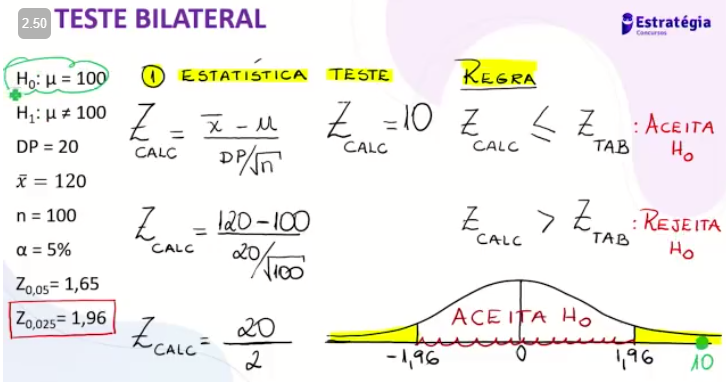 2.50
TESTE BILATERAL
Estratégia
Concursos
H₀: μ = 100
H₁: μ ≠ 100
DP = 20
x̄ = 120
n = 100
α = 5%
Z₀,₀₅ = 1,65
Z₀,₀₂₅ = 1,96
1 ESTATÍSTICA TESTE
Z CALC = (x̄ - μ) / (DP/√n)
Z CALC = (120 - 100) / (20/√100)
Z CALC = 20 / 2
Z CALC = 10
REGRA
Z CALC ≤ Z TAB : ACEITA H₀
Z CALC > Z TAB : REJEITA H₀
ACEITA H₀
-1,96 0 1,96 10